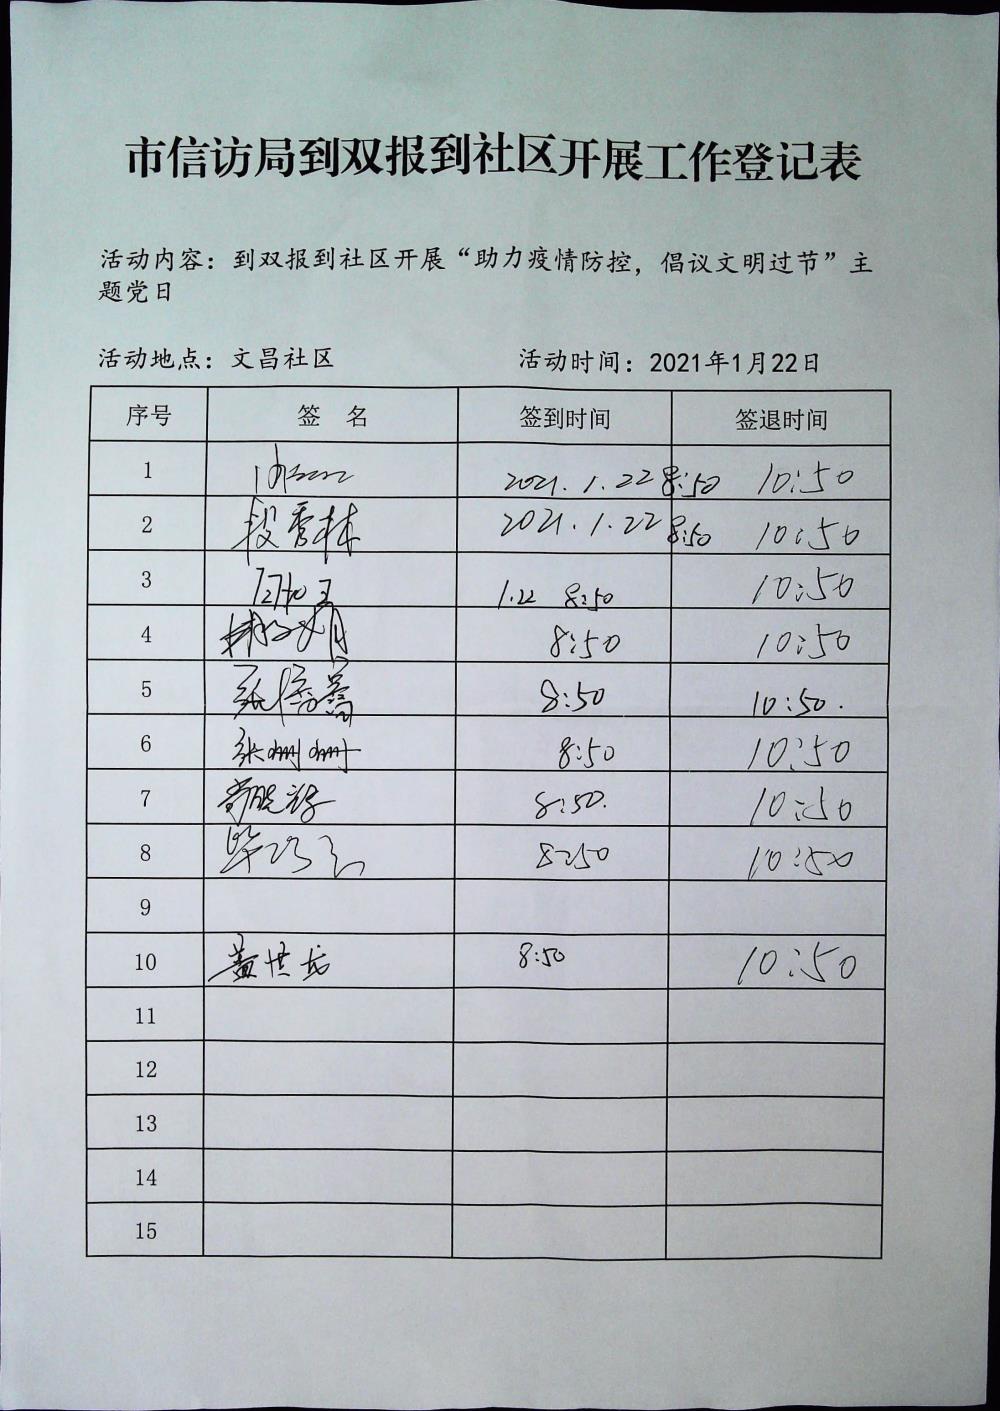 市信访局到双报到社区开展工作登记表
活动内容：到双报到社区开展“助力疫情防控，倡议文明过节”主
题党日
活动地点：文昌社区 活动时间：2021年1月22日
序号 签 名 签到时间 签退时间
1 2021.1.22 8:50 10:50
2 段秀林 2021.1.22 8:50 10:50
3 1.22 8:50 10:50
4 8:50 10:50
5 8:50 10:50.
6 张姗姗 8:50 10:50
7 8:50. 10:50
8 8:50 10:50
9
10 盖世龙 8:50 10:50
11
12
13
14
15